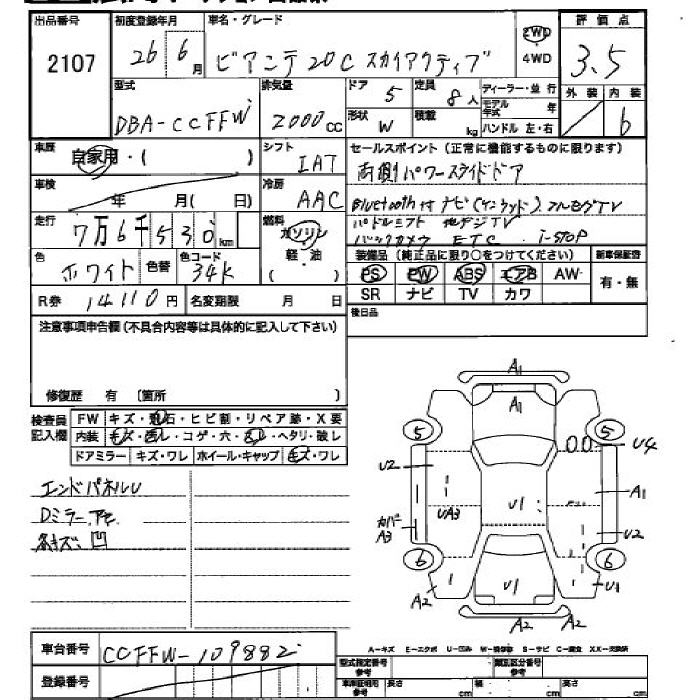 出品番号
2107
初度登録年月
26 6月
車名・グレード
ビアンテ 20C スカイアクティブ
2WD
4WD
評価点
3.5
外装 内装
6
型式
DBA-CCFFW
排気量
2000cc
ドア
5
定員
8人
形状
W
積載
kg
ディーラー・並行
モデル年式 年
ハンドル 左・右
車歴
自家用・( )
シフト
IAT
車検
年 月( 日)
冷房
AAC
走行
7万6千530km
燃料
ガソリン
軽・油
( )
色
ホワイト
色替
色コード
34K
R券 14110円
名変期限 月 日
セールスポイント(正常に機能するものに限ります)
両側パワースライドドア
Bluetooth付ナビ(ケンウッド).フルセグTV
パドルシフト 地デジTV
バックカメラ ETC i-stop
装備品(純正品に限り○をつけてください)
PS PW ABS エアB AW
SR ナビ TV カワ
新車保証書
有・無
後日品
注意事項申告欄(不具合内容等は具体的に記入して下さい)
修復歴 有 〔箇所 〕
検査員記入欄
FW キズ・飛石・ヒビ割・リペア跡・X要
内装 キズ・汚レ・コゲ・穴・スレ・ヘタリ・破レ
ドアミラー キズ・ワレ ホイール・キャップ キズ・ワレ
エンドパネルU
凹
A1
A1
5
5
U4
U2
A1
UA3
U1
カバー
A3
U2
6
6
U1
U1
A2
A2
車台番号
CCFFW-109882
登録番号
A-キズ E-エクボ U-凹み W-補修跡 S-サビ C-腐食 XX-交換済
型式指定番号
類別区分番号
車庫証明用参考
長さ cm
幅 cm
高さ cm